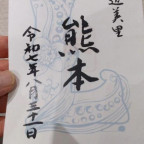 辺美里
熊本
令和七年八月三十一日